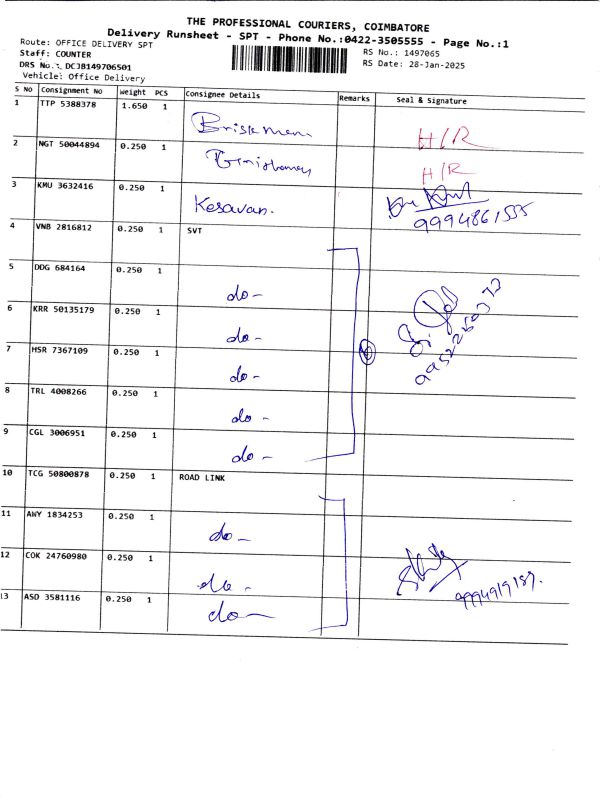 THE PROFESSIONAL COURIERS, COIMBATORE
Delivery Runsheet - SPT - Phone No.:0422-3505555 - Page No.:1
Route: OFFICE DELIVERY SPT
RS No.: 1497065
Staff: COUNTER
RS Date: 28-Jan-2025
DRS No.: DCJB149706501
Vehicle: Office Delivery
S No Consignment No Weight PCS Consignee Details Remarks Seal & Signature
1 TTP 5388378 1.650 1
H/R
2 NGT 50044894 0.250 1
H/R
3 KMU 3632416 0.250 1 Kesavan.
9994861555
4 VNB 2816812 0.250 1 SVT
5 DDG 684164 0.250 1 do-
6 KRR 50135179 0.250 1 do-
7 HSR 7367109 0.250 1 do-
8 TRL 4008266 0.250 1 do-
9 CGL 3006951 0.250 1 do-
10 TCG 50800878 0.250 1 ROAD LINK
11 AWY 1834253 0.250 1 do-
12 COK 24760980 0.250 1 do-
13 ASD 3581116 0.250 1 do-
9994919189.